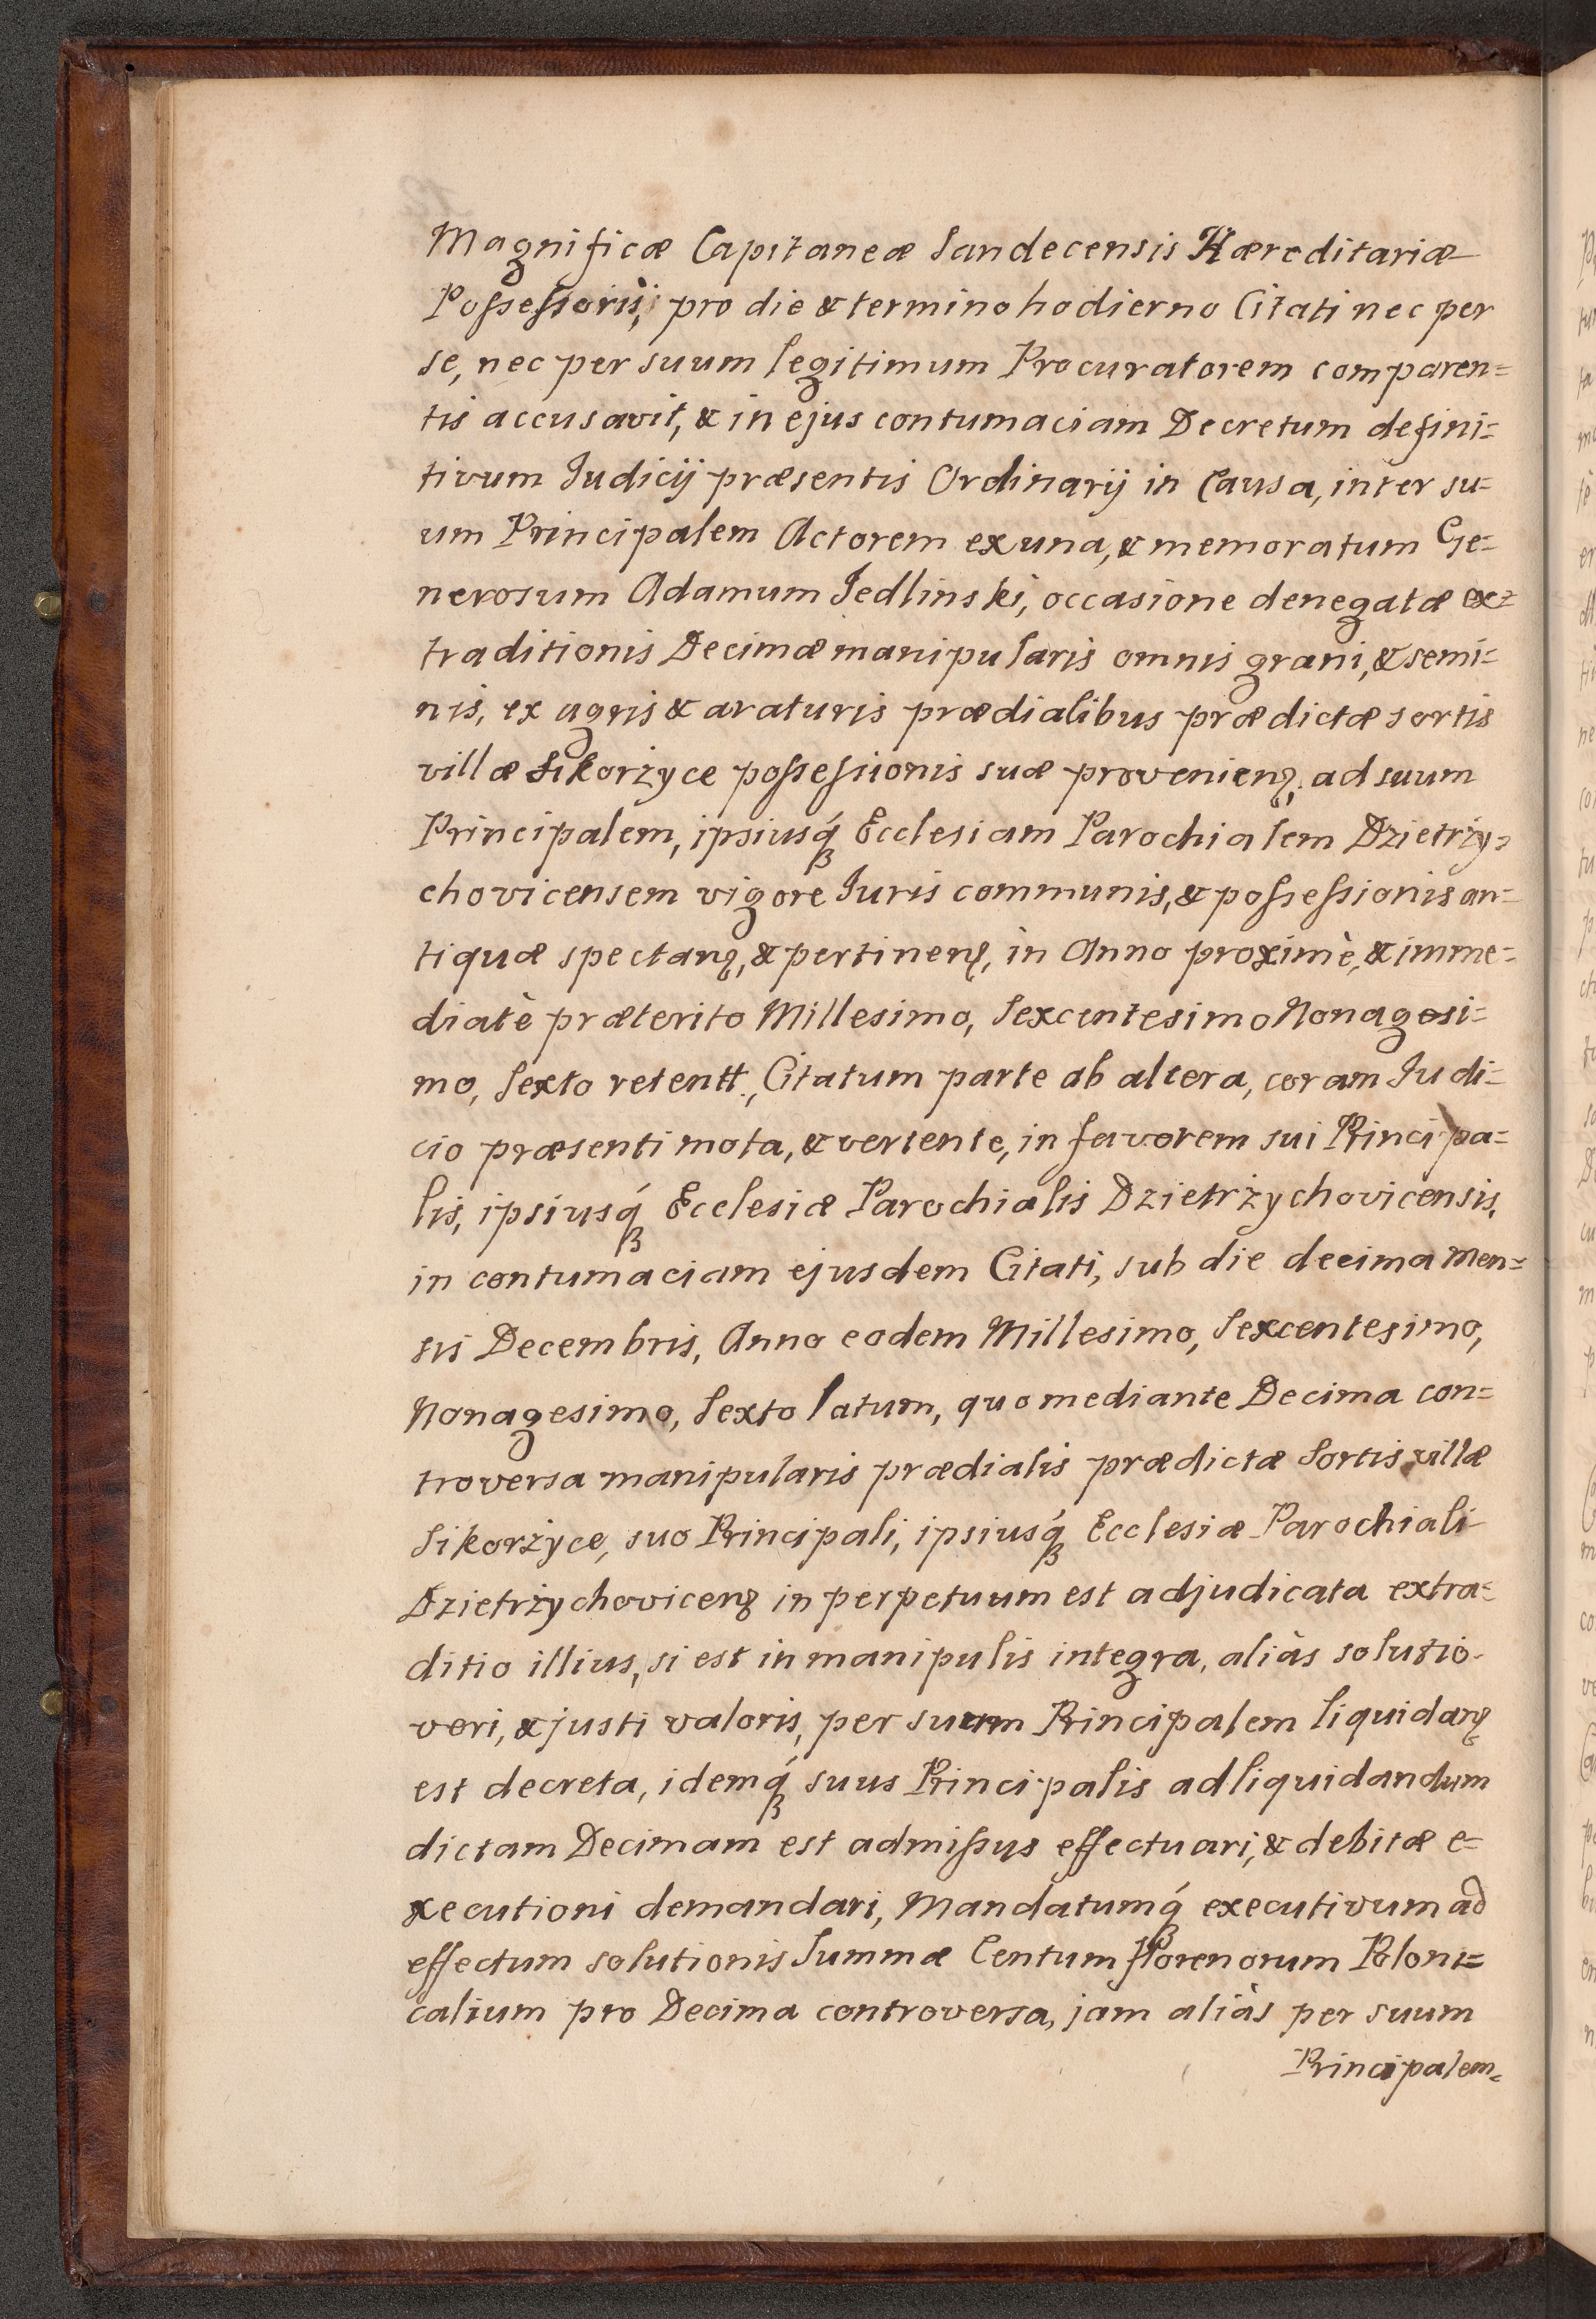 Magnificæ Capitaneæ Sandecensis Hæreditariæ
Possessoris, pro die & termino hodierno Citati nec per
se, nec per suum legitimum Procuratorem comparen=
tis accusavit, & in ejus contumaciam Decretum defini=
tivum Iudicij præsentis Ordinarij in Causa, inter su=
um Principalem Actorem ex una, & memoratum Ge=
nerosum Adamum Jedlinski, occasione denegatæ ex=
traditionis Decimæ manipularis omnis grani, & semi=
nis, ex agris & araturis prædialibus prædictæ sortis
villæ Sikorżyce possessionis suæ provenienꝫ, ad suum
Principalem, ipsiusq́ꝫ Ecclesiam Parochialem Dzietrży=
chovicensem vigore Iuris communis, & possessionis an=
tiquæ spectanꝫ, & pertinenꝫ, in Anno proximè, & imme=
diatè præterito Millesimo, Sexcentesimo Nonagesi=
mo, Sexto retentt., Citatum parte ab altera, coram Iudi=
cio præsenti mota, & vertente, in favorem sui Principa=
lis, ipsiusq́ꝫ Ecclesiæ Parochialis Dzietrżychovicensis,
in contumaciam ejusdem Citati, sub die decima Men=
sis Decembris, Anno eodem Millesimo, Sexcentesimo,
Nonagesimo, Sexto latum, quo mediante Decima con=
troversa manipularis prædialis prædictæ Sortis villæ
Sikorżyce, suo Principali, ipsiusq́ꝫ Ecclesiæ Parochiali
Dzietrżychovicenꝫ in perpetuum est adjudicata extra=
ditio illius, si est in manipulis integra, aliàs solutio
veri, & justi valoris, per suum Principalem liquidanꝫ
est decreta, idemq́ꝫ suus Principalis ad liquidandum
dictam Decimam est admissus effectuari, & debitæ e=
xecutioni demandari, Mandatumq́ꝫ executivum ad
effectum solutionis Summæ Centum florenorum Poloni=
calium pro Decima controversa, jam aliàs per suum
Principalem=